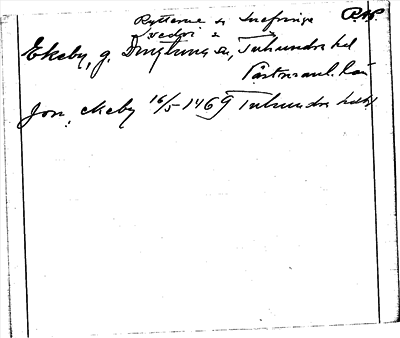 Rytterne sn Snefringe RAP.
Ekeby, g. Dingtuna sn, Tuhundra hd
Västmanl. län
Jon, ekeby 16/5-1469 Tuhundra hdbf